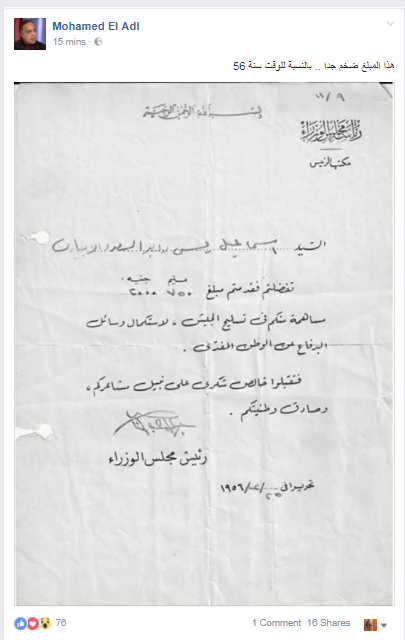 Mohamed El Adl
15 mins ·
هذا المبلغ ضخم جدا .. بالنسبة للوقت سنة 56
١١/٩
بسم الله الرحمن الرحيم
رئاسة مجلس الوزراء
مكتب الرئيس
السيد اسماعيل يس
تفضلتم فقدمتم مبلغ مليم جنيه
٧٥٠ ٢٠٠٠
مساهمة منكم فى تسليح الجيش ، لاستكمال وسائل
الدفاع عن الوطن المفدى .
فتقبلوا خالص شكرى على نبيل مشاعركم ،
وصادق وطنيتكم .
رئيس مجلس الوزراء
تحريرا فى ١٩٥٦/
76
1 Comment 16 Shares